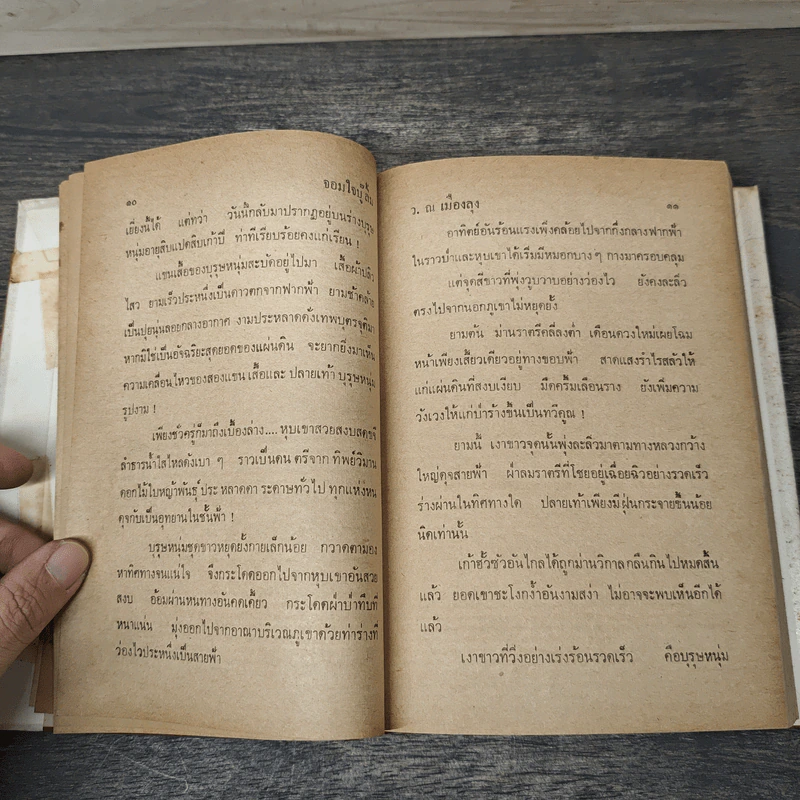 ๑๐ จอมใจบู๊ลิ้ม
เยี่ยงนี้ได้ แต่ทว่า วันนี้กลับมาปรากฏอยู่บนร่างบุรุษ
หนุ่มอายุสิบแปดสิบเก้าปี ท่าทีเรียบร้อยคงแก่เรียน !
แขนเสื้อของบุรุษหนุ่มสะบัดอยู่ไปมา เสื้อผ้าปลิว
ไสว ยามเร็วประหนึ่งเป็นดาวตกจากฟากฟ้า ยามช้าคล้าย
เป็นปุยนุ่นลอยกลางอากาศ งามประหลาดดั่งเทพบุตรจุติมา
หากมิใช่เป็นอัจฉริยะสุดยอดของแผ่นดิน จะยากยิ่งมาเห็น
ความเคลื่อนไหวของสองแขนเสื้อและปลายเท้า บุรุษหนุ่ม
รูปงาม !
เพียงชั่วครู่ก็มาถึงเบื้องล่าง.... หุบเขาสวยสงบสดุจจี
ลำธารน้ำใสไหลดังเบา ๆ ราวเป็นดนตรีจากทิพย์วิมาน
ดอกไม้ใบหญ้าพันธุ์ประหลาดดาระดาษทั่วไป ทุกแห่งหน
ดุจกับเป็นอุทยานในชั้นฟ้า !
บุรุษหนุ่มชุดขาวหยุดยั้งกายเล็กน้อย กวาดตามอง
หาทิศทางจนแน่ใจ จึงกระโดดออกไปจากหุบเขาอันสวย
สงบ อ้อมผ่านหนทางอันคดเคี้ยว กระโดดฝ่าป่าทึบที่
หนาแน่น มุ่งออกไปจากอาณาบริเวณภูเขาด้วยท่าร่างที่
ว่องไวประหนึ่งเป็นสายฟ้า
ว. ณ เมืองลุง ๑๑
อาทิตย์อันร้อนแรงเพิ่งคล้อยไปจากกึ่งกลางฟากฟ้า
ในราวป่าและหุบเขาได้เริ่มมีหมอกบาง ๆ กางมาครอบคลุม
แต่จุดสีขาวที่พุ่งวูบวาบอย่างว่องไว ยังคงละลิ่ว
ตรงไปจากนอกภูเขาไม่หยุดยั้ง
ยามดึก ม่านราตรีคลี่ลงต่ำ เดือนดวงใหม่เผยโฉม
หน้าเพียงเสี้ยวเดียวอยู่ทางขอบฟ้า สาดแสงรำไรสลัวให้
แก่แผ่นดินที่สงบเงียบ มืดครึ้มเลือนราง ยังเพิ่มความ
วังเวงให้แก่ป่าร้างขึ้นเป็นทวีคูณ !
ยามนี้ เงาขาวจุดนั้นพุ่งละลิ่วมาตามทางหลวงกว้าง
ใหญ่ดุจสายฟ้า ฝ่าลมราตรีที่โชยอยู่เฉื่อยฉิวอย่างรวดเร็ว
ร่างผ่านในทิศทางใด ปลายเท้าเพียงมีฝุ่นกระจายขึ้นน้อย
นิดเท่านั้น
เก้าฮั้วซัวอันไกลได้ถูกม่านวิกาลกลืนกินไปหมดสิ้น
แล้ว ยอดเขาชะโงกง้ำอันงามสง่า ไม่อาจจะพบเห็นอีกได้
แล้ว
เงาขาวที่วิ่งอย่างเร่งร้อนรวดเร็ว คือบุรุษหนุ่ม